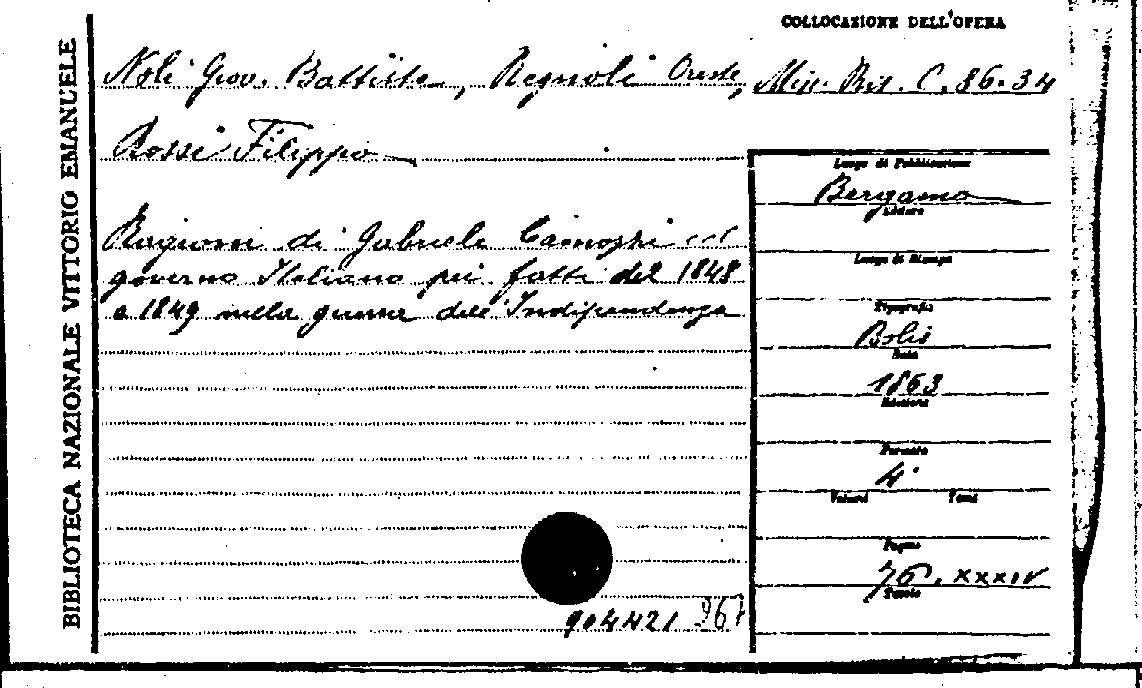 COLLOCAZIONE DELL'OPERA
BIBLIOTECA NAZIONALE VITTORIO EMANUELE
Noli Giov. Battista, Regnoli Oreste,
Misc. Ris. C. 86.34
Rossi Filippo
Ragioni di Gabriele Camozzi col
governo Italiano pei fatti del 1848
e 1849 nella guerra dell'Indipendenza
Luogo di Pubblicazione
Bergamo
Editore
Luogo di Stampa
Tipografia
Bolis
Data
1863
Edizione
Formato
4°
Volumi Tomi
Pagine
76. XXXIV
Tavole
904421